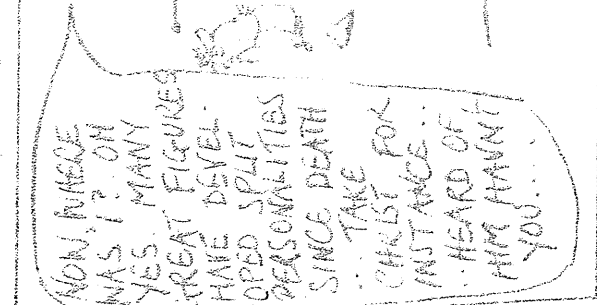 NOW, WHERE
WAS I? OH
YES MANY
GREAT FIGURES
HAVE DEVEL-
OPED SPLIT
PERSONALITIES
SINCE DEATH
.. TAKE
CHRIST FOR
INSTANCE..
.. HEARD OF
HIM HAVN'T
YOU....